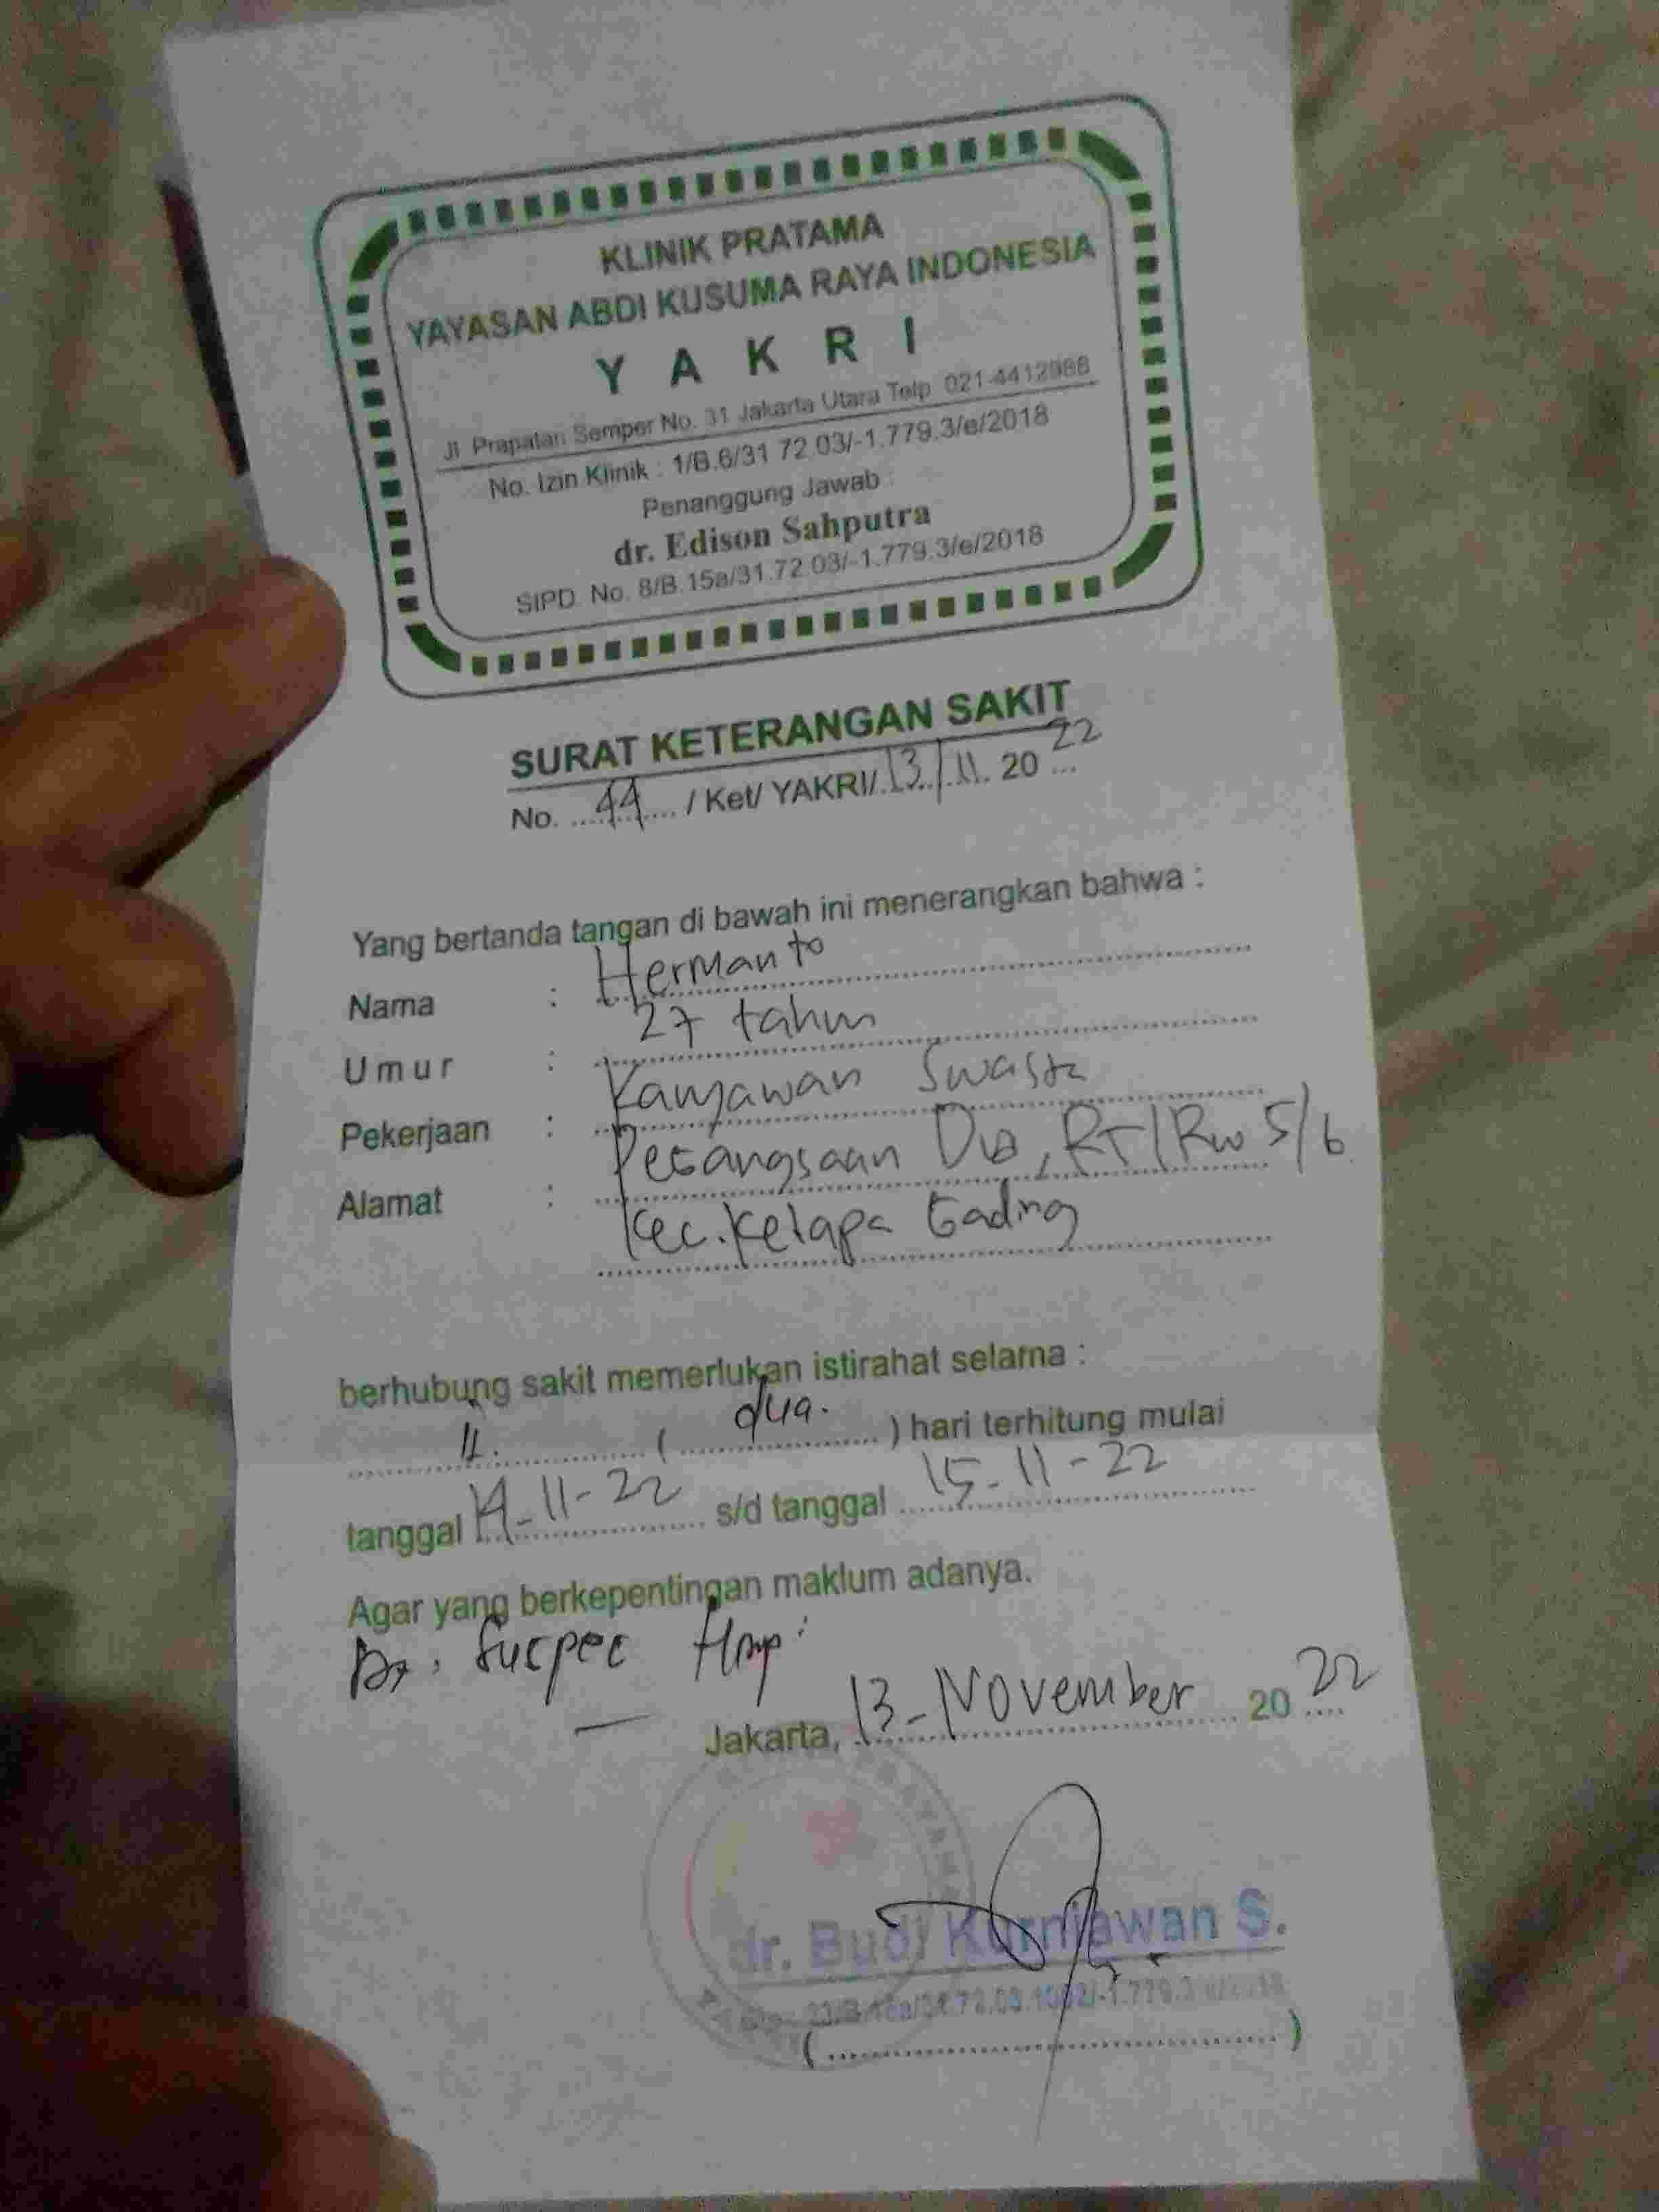 KLINIK PRATAMA
YAYASAN ABDI KUSUMA RAYA INDONESIA
Y A K R I
Jl. Prapatan Semper No. 31 Jakarta Utara Telp. 021-4412988
No. Izin Klinik : 1/B.6/31.72.03/-1.779.3/e/2018
Penanggung Jawab :
dr. Edison Sahputra
SIPD. No. 8/B.15a/31.72.03/-1.779.3/e/2018
SURAT KETERANGAN SAKIT
No. 44 / Ket/ YAKRI/ 13/11. 20 22
Yang bertanda tangan di bawah ini menerangkan bahwa :
Nama : Hermanto
Umur : 27 tahun
Pekerjaan : Karyawan Swasta
Alamat : Pegangsaan Dua, RT/RW 5/6
Kec. Kelapa Gading
berhubung sakit memerlukan istirahat selama :
II. ( dua. ) hari terhitung mulai
tanggal 14-11-22 s/d tanggal 15-11-22
Agar yang berkepentingan maklum adanya.
Suspec
Jakarta, 13-November 20 22
dr. Budi Kurniawan S.
( )